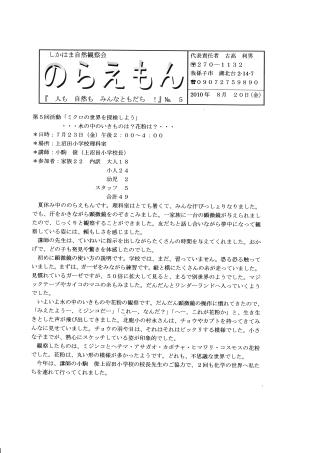 しかはま自然観察会
のらえもん
『 人も 自然も みんなともだち ！』№ 5
代表責任者 古高 利男
〒270－1132
我孫子市 湖北台 2-14-7
09072759890
2010年 8月 20日(金)
第5回活動「ミクロの世界を探検しよう」
・・・水の中のいきものは？花粉は？・・・
＊日時：7月23日(金)午後2：00～4：00
＊場所：上沼田小学校理科室
＊講師：小駒 俊（上沼田小学校長）
＊参加者：家族22 内訳 大人18
小人24
幼児 2
スタッフ 5
合計49
夏休み中ののらえもんです。理科室はとても暑くて、みんな汗びっしょりなりました。
でも、汗をかきながら顕微鏡をのぞきこみました。一家族に一台の顕微鏡が与えられまし
たので、じっくりと観察することができました。友だちと話し合いながら夢中になって観
察している姿には、頼もしさを感じました。
講師の先生は、ていねいに指示を出しながらたくさんの時間を与えてくれました。おか
げで、どの子も発見や驚きを体感したのでした。
初めに顕微鏡の使い方の説明です。学校では、まだ、習っていません。恐る恐る触って
いました。まずは、ガーゼをみながら練習です。縦と横にたくさんの糸が走っていました。
見慣れているガーゼですが、50倍に拡大して見ると、まるで別世界のようでした。マジ
ックテープやカイコのマユの糸もみました。だんだんとワンダーランドへ入っていくよう
でした。
いよいよ水の中のいきものや花粉の観察です。だんだん顕微鏡の操作に慣れてきたので、
「みえたよう－、ミジンコだ－」「これ－、なんだ？」「へ－、これが花粉か」と、生き生
きとした声が飛び出してきました。北鹿小の村永さんは、チョウやカブトを持ってきてみ
んなに見せていました。チョウの羽や目は、それはそれはビックリする模様でした。小さ
な子までが、熱心にスケッチしている姿が印象的でした。
観察したものは、ミジンコとヘチマ・アサガオ・カボチャ・ヒマワリ・コスモスの花粉
でした。花粉は、丸い形の模様が多かったようです。どれも、不思議な世界でした。
今年は、講師の小駒 俊上沼田小学校の校長先生のご協力で、2回も化学の世界へ私た
ちを連れて行ってくれました。